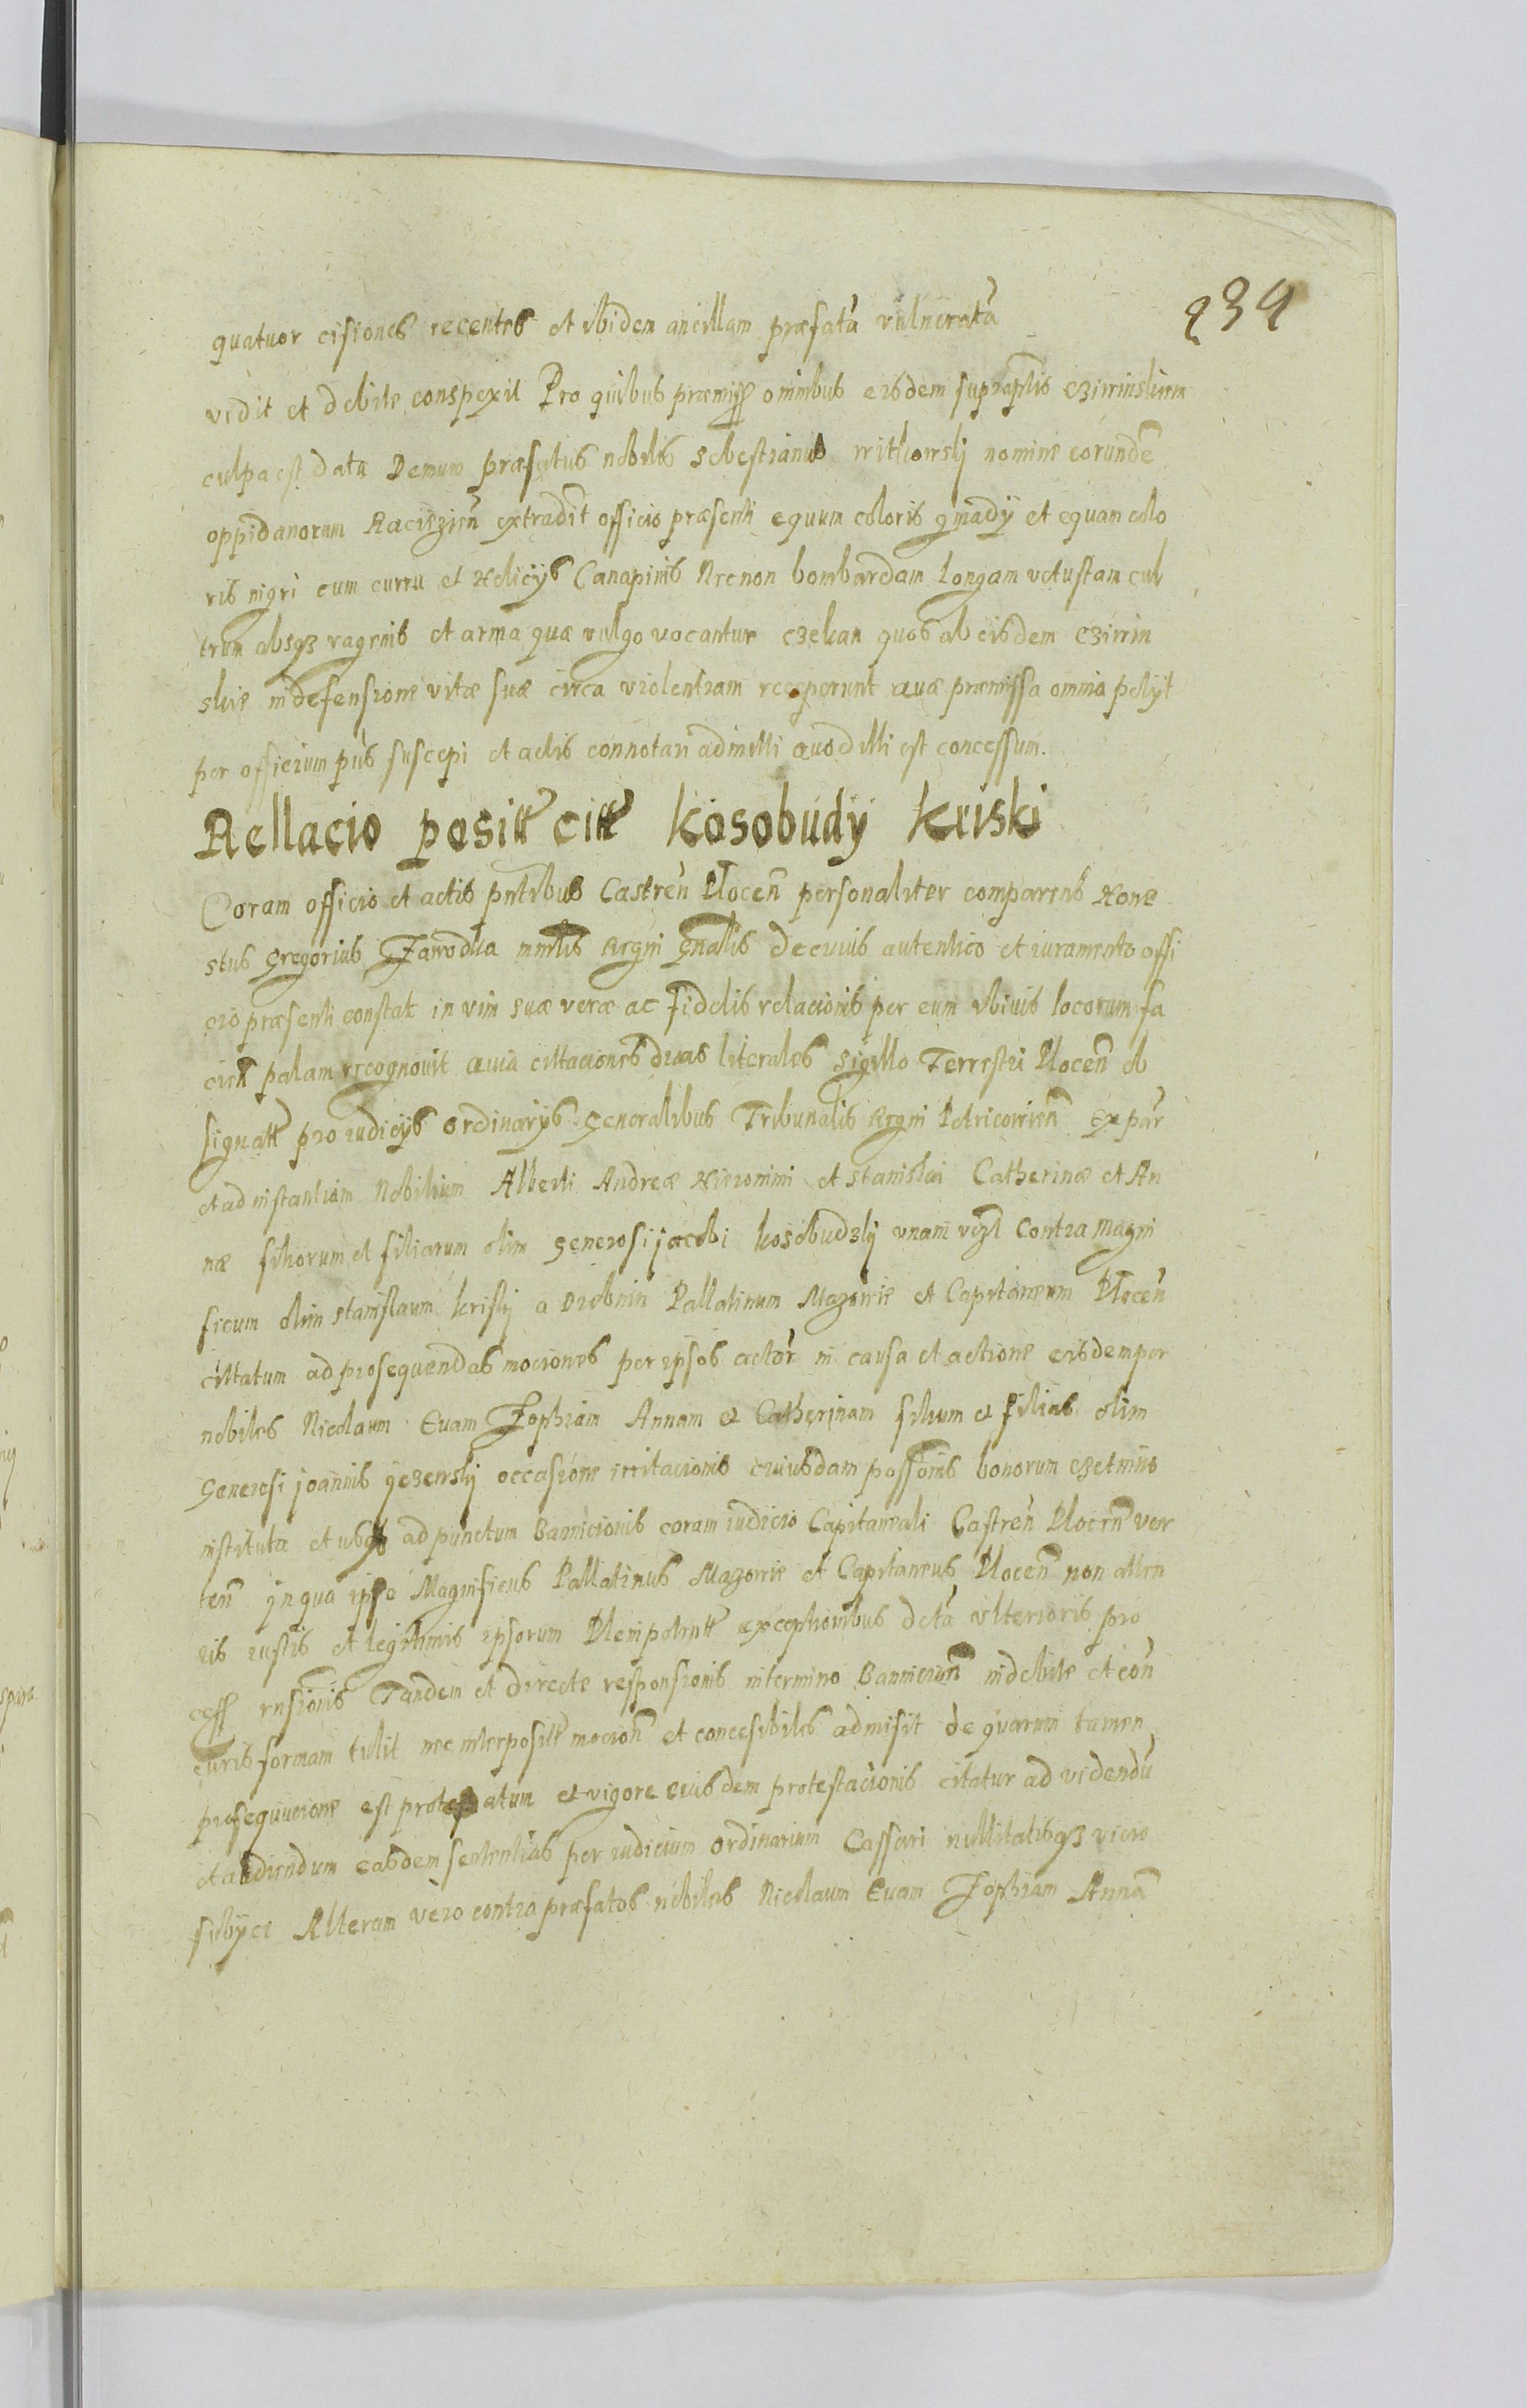 239
quatuor cisiones recentes et ibidem ancillam præfatã vulneratã
vidit et debite conspexit Pro quibus præmiss omnibus eisdem supraptis
culpa est data Demum præfatus nobilis Sebestianus Witkowskj nomine eorundẽ
oppidanorum Raciązień extradit officio præsenti equum coloris gniady et equam colo
ris nigri cum curru et Helicijs Canapinis Necnon bombardam Longam vetustam cul
trum absqz vagenis et arma quæ vulgo vocantur czekan quos ab eisdem Czirrin
skie in defensione vitæ suæ circa violentiam receperunt quæ præmissa omnia petijt
per officium pñs suscepi et actis connotari admitti quod illi est concessum.
Rellacio positt citt kosobudy kriski
Coram officio et actis pntibus Castreñ Płoceñ personaliter comparens Hone
stus Gregorius Zawodka mnlis Regni Gnalis de cuius autentico et iuramento offi
cio præsenti constat in vim suæ veræ ac fidelis relacionis per eum vbiuis locorum fa
cieñ palam recognouit quia cittaciones duas literales sigillo Terrestri Płoceñ ob
signatt pro iudicijs ordinarijs Generalibus Tribunalis Regni Petricouieñ Ex par
et ad instantiam Nobilium Alberti Andreæ Hieronimi et Stanislai Catherinæ et An
næ filiorum et filiarum olim Generosi jacobi kosobudzkj vnam vczł Contra Magni
ficum olim Stanislaum kriskj a Drobnin Pallatinum Mazowie et Capitaneum Płoceñ
cittatum ad prosequendas mociones per ipsos actor in causa et actione eisdem per
nobiles Nicolaum Euam Zophiam Annam et Catherinam filium et filias olim
Generosi joannis gezewskj occasione irritacionis cuiusdam possonis bonorum
instituta et usqz ad punctum Bannicionis coram iudicio Capitaneali Castreñ Płoceñ ver
teñ jn qua ipse Magnificus Pallatinus Mazowie et Capitaneus Płoceñ non atten
tis iustis et legitimis ipsorum Plenipotentt exceptionibus dctã vlterioris pro
cess ensionis Tandem et directe responsionis in termino Bannicioñ indebite et con
Juris formam tulit nec interpositt mocioñ et concesibiles admisit de quarum tamen
prosequucione est protestatum et vigore eiusdem protestacionis citatur ad videndũ
et audiendum easdem sententias per iudicium ordinarium Cassari nullitatisqz vicio
subijci Alteram vero contra præfatos nobiles Nicolaum Euam Zophiam Annã